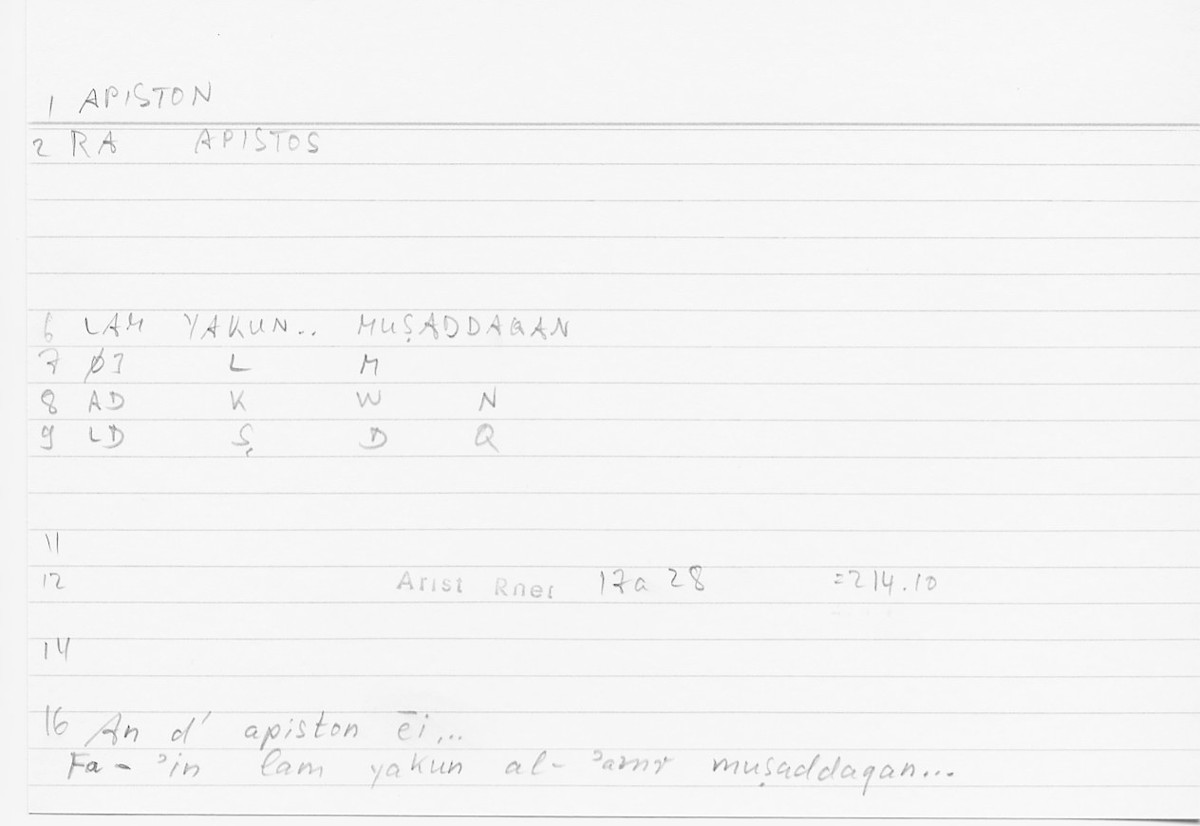 1 APISTON
2 RA APISTOS
6 LAM YAKUN.. MUṢADDAQAN
7 ∅J L M
8 AD K W N
9 LD Ṣ D Q
11
12 Arist Rhet 17a 28 =214.10
14
16 An d' apiston ēi...
Fa- ʾin lam yakun al- ʾamr muṣaddaqan...